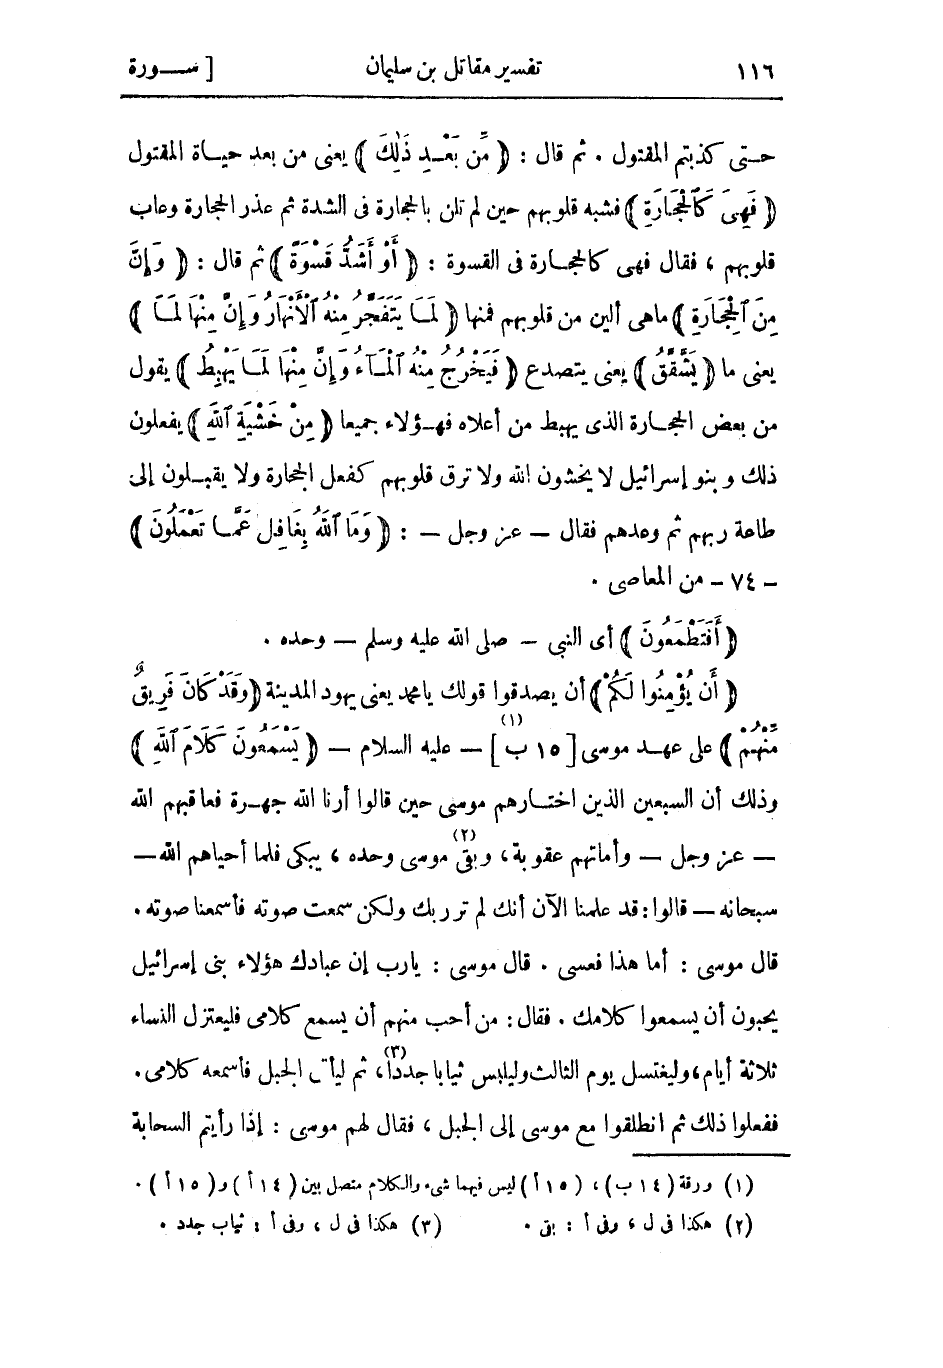 ١١٦ تفسير مقاتل بن سليمان [ ســورة
حــتى كذبتم المقتول . ثم قال : ﴿ مِّن بَعْــدِ ذَٰلِكَ ﴾ يعنى من بعد حيــاة المقتول
﴿ فَهِىَ كَٱلْحِجَارَةِ ﴾ فشبه قلوبهم حين لم تلن بالحجارة فى الشدة ثم عذر الحجارة وعاب
قلوبهم ، فقال فهى كالحجــارة فى القسوة : ﴿ أَوْ أَشَدُّ قَسْوَةً ﴾ ثم قال : ﴿ وَإِنَّ
مِنَ ٱلْحِجَارَةِ ﴾ ماهى ألين من قلوبهم فمنها ﴿ لَمَــا يَتَفَجَّرُ مِنْهُ ٱلْأَنْهَارُ وَإِنَّ مِنْهَا لَمَــا ﴾
يعنى ما ﴿ يَشَّقَّقُ ﴾ يعنى يتصدع ﴿ فَيَخْرُجُ مِنْهُ ٱلْمَــآءُ وَإِنَّ مِنْهَا لَمَــا يَهْبِطُ ﴾ يقول
من بعض الحجــارة الذى يهبط من أعلاه فهــؤلاء جميعا ﴿ مِنْ خَشْيَةِ ٱللَّهِ ﴾ يفعلون
ذلك وبنو إسرائيل لا يخشون الله ولا ترق قلوبهم كفعل الحجارة ولا يقبــلون إلى
طاعة ربهم ثم وعدهم فقال — عز وجل — : ﴿ وَمَا ٱللَّهُ بِغَافِلٍ عَمَّــا تَعْمَلُونَ ﴾
– ٧٤ – من المعاصى .
﴿ أَفَتَطْمَعُونَ ﴾ أى النبى – صلى الله عليه وسلم — وحده .
﴿ أَن يُؤْمِنُوا لَكُمْ ﴾ أن يصدقوا قولك يامحمد يعنى يهود المدينة ﴿ وَقَدْ كَانَ فَرِيقٌ
مِّنْهُمْ ﴾ على عهــد موسى [ ١٥ ب ] (١) — عليه السلام — ﴿ يَسْمَعُونَ كَلَامَ ٱللَّهِ ﴾
وذلك أن السبعين الذين اختــارهم موسى حين قالوا أرنا الله جهــرة فعاقبهم الله
— عز وجل — وأماتهم عقوبة ، وبقى (٢) موسى وحده ، يبكى فلما أحياهم الله —
سبحانه — قالوا : قد علمنا الآن أنك لم تر ربك ولكن سمعت صوته فأسمعنا صوته .
قال موسى : أما هذا فعسى . قال موسى : يارب إن عبادك هؤلاء بنى إسرائيل
يحبون أن يسمعوا كلامك . فقال : من أحب منهم أن يسمع كلامى فليعتزل النساء
ثلاثة أيام ، وليغتسل يوم الثالث وليلبس ثيابا جددا (٣) ، ثم ليأت الجبل فأسمعه كلامى .
ففعلوا ذلك ثم انطلقوا مع موسى إلى الجبل ، فقال لهم موسى : إذا رأيتم السحابة
(١) ورقة ( ١٤ ب ) ، ( ١٥ أ ) ليس فيهما شىء والكلام متصل بين ( ١٤ أ ) و ( ١٥ أ ) .
(٢) هكذا فى ل ، وفى أ : بق . (٣) هكذا فى ل ، وفى أ : ثياب جدد .